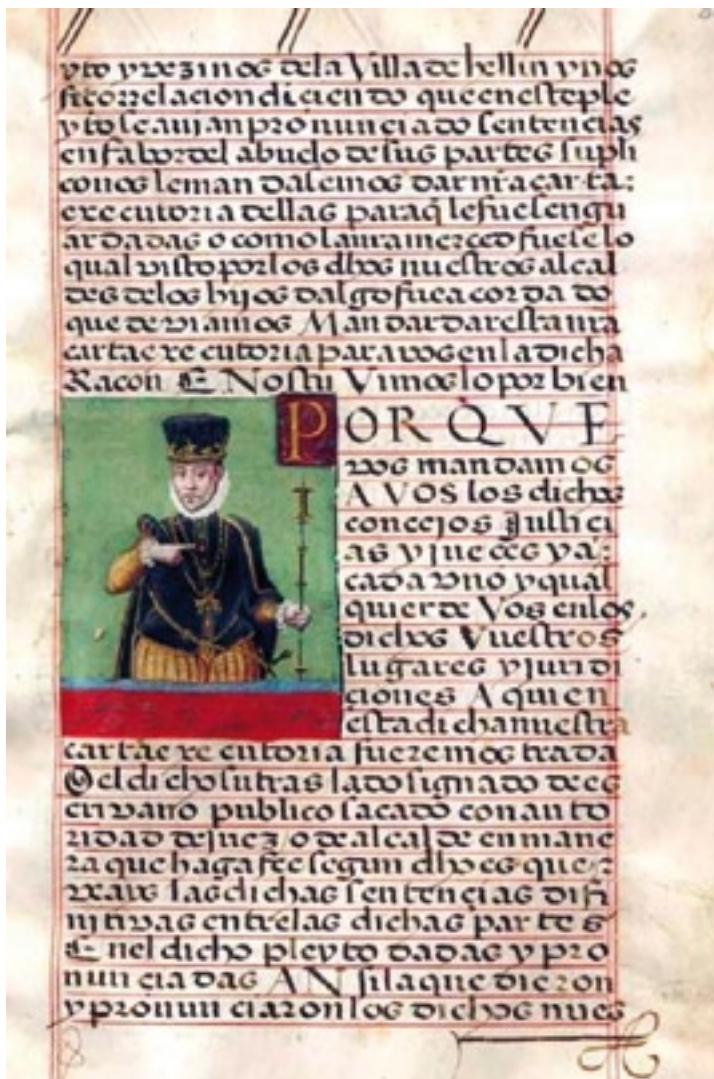 yto y vezinos dela Villa de hellin y nos
fizo rrelacion diciendo que en este ple
yto se auian pronunciado sentencias
en fabor del abuelo de sus partes supli
conos le mandasemos dar nra carta:
executoria dellas para q̄ le fuesen gu
ardadas o como la nra merced fuese lo
qual visto por los dhos nuestros alcal
des delos hijos dalgo fue acordado
que deviamos Mandar dar esta nra
carta executoria para vos en la dicha
Racon E Nos tu Vimoslo por bien
PORQVE
vos mandamos
A VOS los dichos
concejos Justici
as y jueces y a:
cada vno y qual
quier de Vos en los
dichos Vuestros
lugares y juridi
ciones A quien
esta dicha nuestra
carta executoria fuere mostrada
O el dicho su traslado signado de es
crivano publico sacado con auto
ridad de juez o de alcalde en mane
ra que haga fee segun dho es que:
veays las dichas sentencias difi
nitivas entre las dichas partes
E nel dicho pleyto dadas y pro
nunciadas AN si la que dieron
y pronunciaron los dichos nues